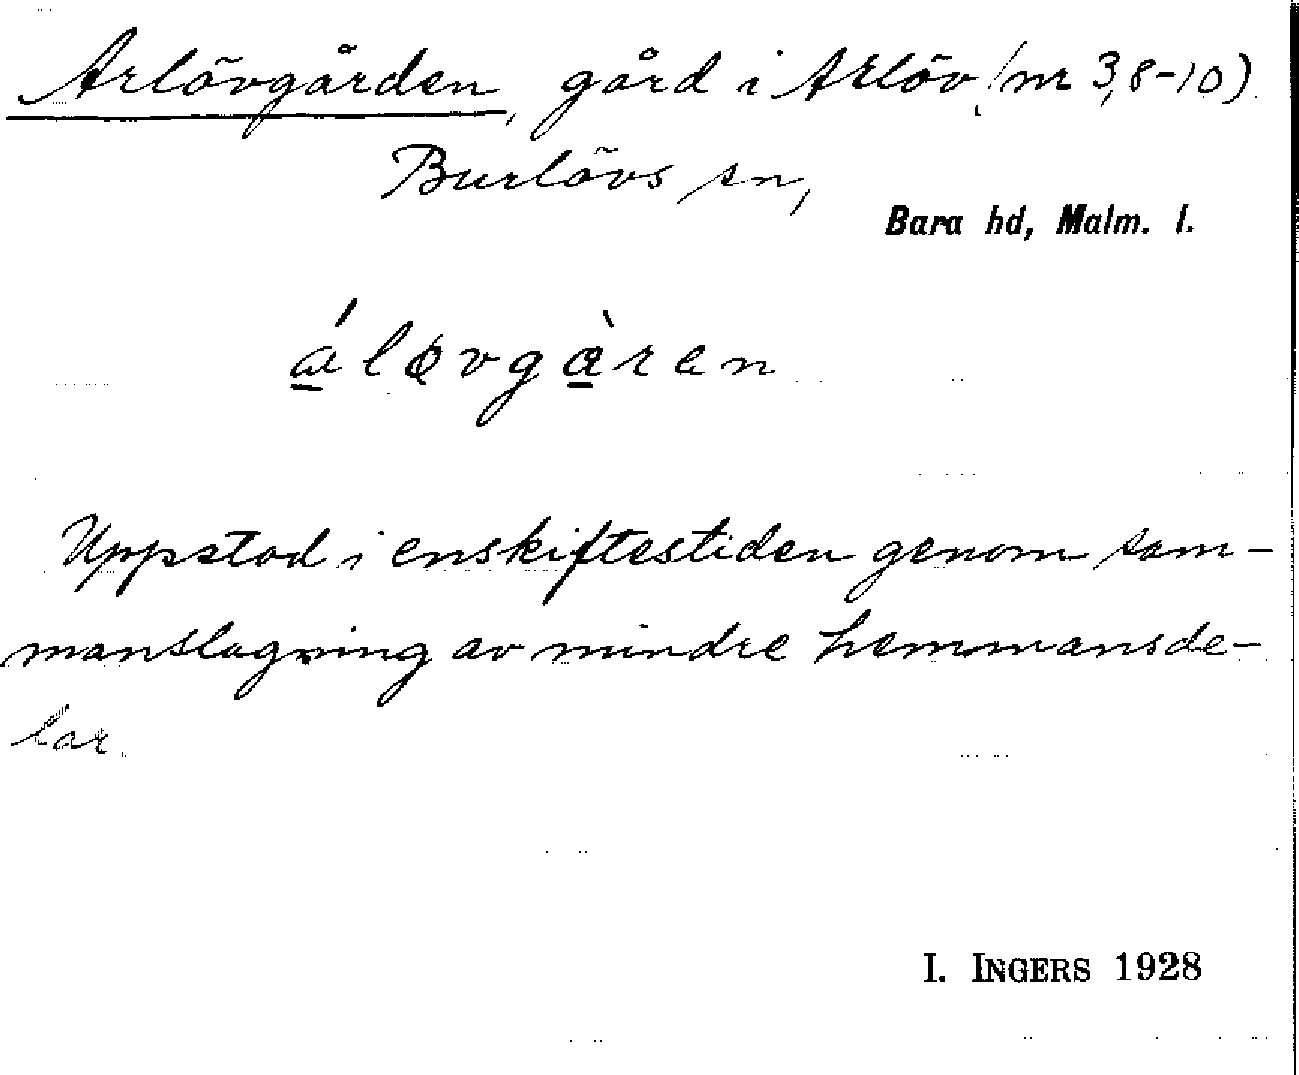 Arlövgården, gård i Arlöv, (nr 3, 8-10)
Burlövs sn,
Bara hd, Malm. l.
álǫvgàren
Uppstod i enskiftestiden genom sam-
manslagning av mindre hemmansde-
lar.
I. INGERS 1928